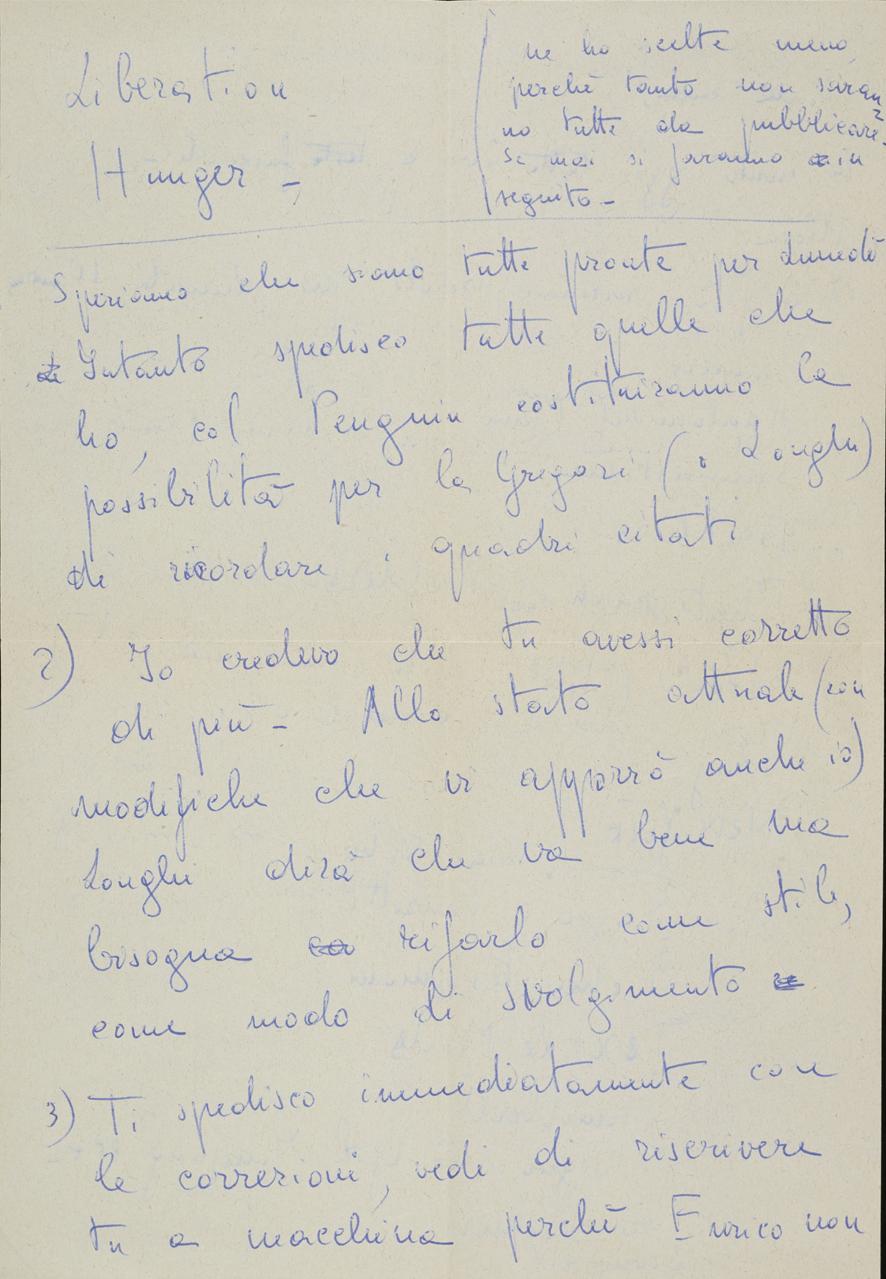 Liberation
Hunger -
ne ho scelte meno,
perchè tanto non saran
no tutte da pubblicare.
Se mai si faranno in
seguito -
Speriamo che siano tutte pronte per Lunedì
Intanto spedisco tutte quelle che
ho, col Penguin costituiranno la
possibilità per la Gregori (o Longhi)
di ricordare i quadri citati
2) Io credevo che tu avessi corretto
di più - Allo stato attuale (con
modifiche che vi apporrò anche io)
Longhi dirà che va bene ma
bisogna rifarlo come stile,
come modo di svolgimento
3) Ti spedisco immediatamente con
le correzioni, vedi di riscrivere
tu a macchina perchè Enrico non